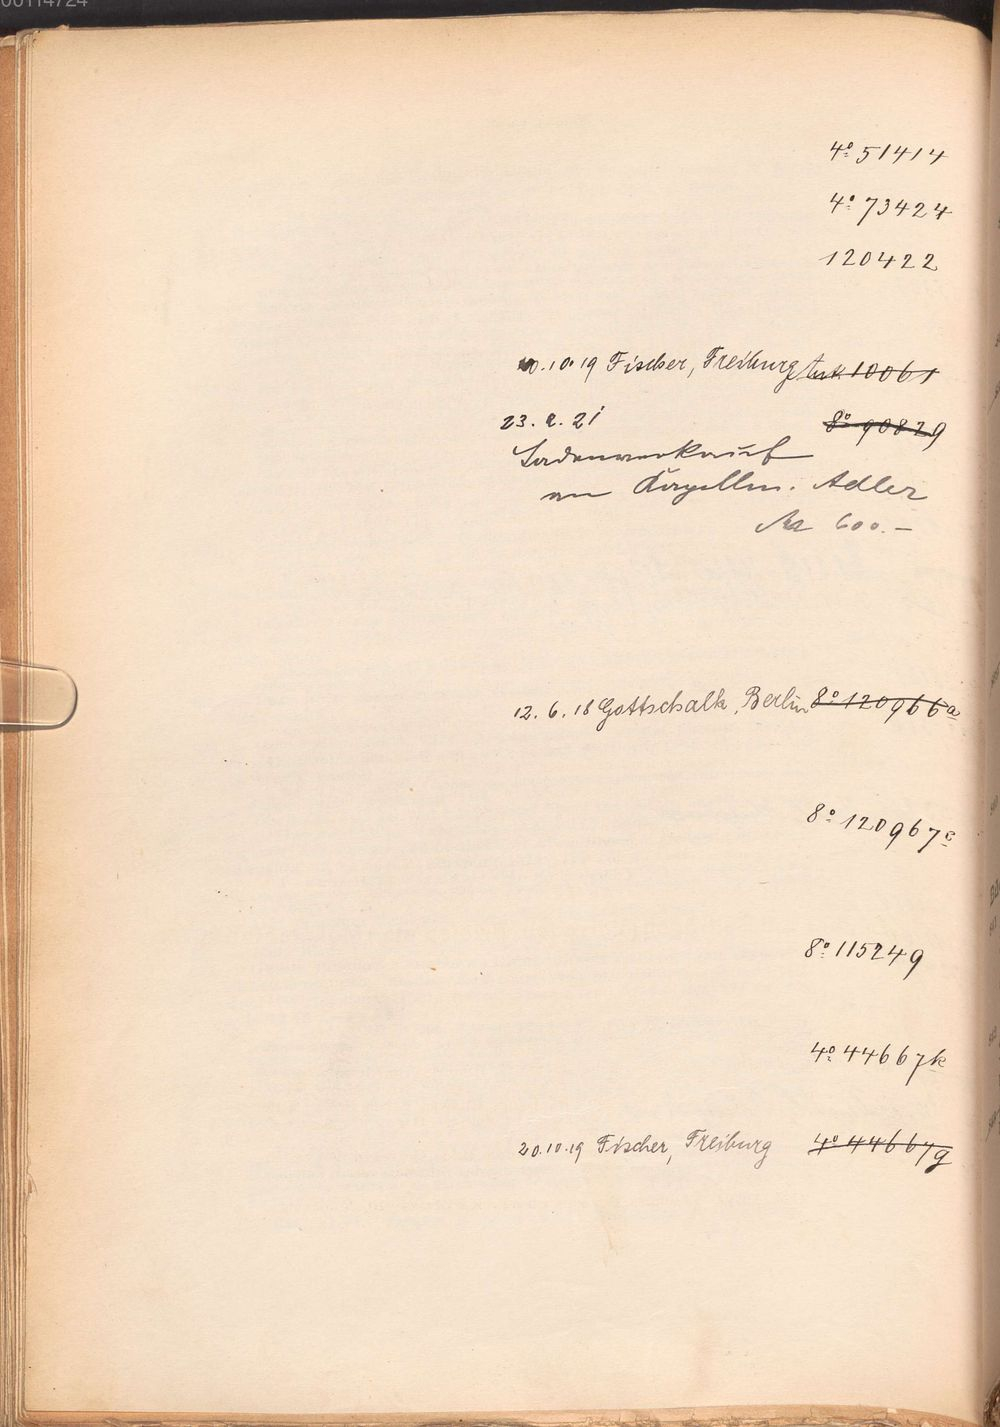 00114724
4° 51414
4° 73424
120422
20.10.19 Fischer, Freiburg Ink 10061
23. 2. 21 8° 90829
Ladenverkauf
an Kapellm. Adler
M 600.–
12. 6. 18 Gottschalk, Berlin 8° 120966a
8° 120967c
8° 115249
4° 44667k
20.10.19 Fischer, Freiburg 4° 44667g